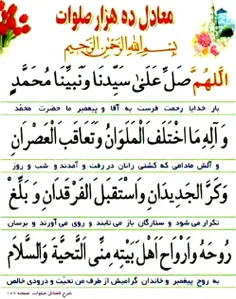 معادل ده هزار صلوات
بِسْمِ اللهِ الرَّحْمٰنِ الرَّحِيمِ
اَللّٰهُمَّ صَلِّ عَلَىٰ سَيِّدِنَا وَنَبِيِّنَا مُحَمَّدٍ
بار خدایا رحمت فرست به آقا و پیغمبر ما حضرت محمد
وَ آلِهِ مَا اخْتَلَفَ الْمَلَوَانُ وَتَعَاقَبَ الْعَصْرَانِ
و آلش مادامی که کشتی رانان در رفت و آمدند و شب و روز
وَكَرَّ الْجَدِيدَانِ وَاسْتَقْبَلَ الْفَرْقَدَانِ وَ بَلِّغْ
تکرار می شود و ستارگان باز می تابند و روی می آورند و برسان
رُوحَهُ وَاَرْوَاحَ اَهْلِ بَيْتِهِ مِنِّی التَّحِيَّةَ وَالسَّلَامَ
به روح پیغمبر و خاندان گرامیش از طرف من تحیت و درودی خالص
شرح فضائل صلوات صفحه ۱۷۷